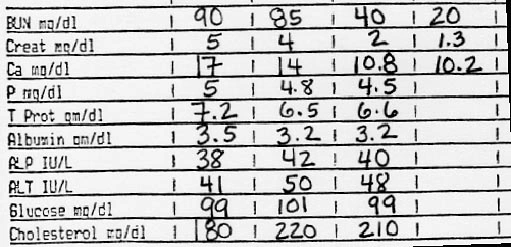 BUN mg/dl | 90 | 85 | 40 | 20 |
Creat mg/dl | 5 | 4 | 2 | 1.3 |
Ca mg/dl | 17 | 14 | 10.8 | 10.2 |
P mg/dl | 5 | 4.8 | 4.5 | |
T Prot gm/dl | 7.2 | 6.5 | 6.6 | |
Albumin gm/dl | 3.5 | 3.2 | 3.2 | |
ALP IU/L | 38 | 42 | 40 | |
ALT IU/L | 41 | 50 | 48 | |
Glucose mg/dl | 99 | 101 | 99 | |
Cholesterol mg/dl | 180 | 220 | 210 | |